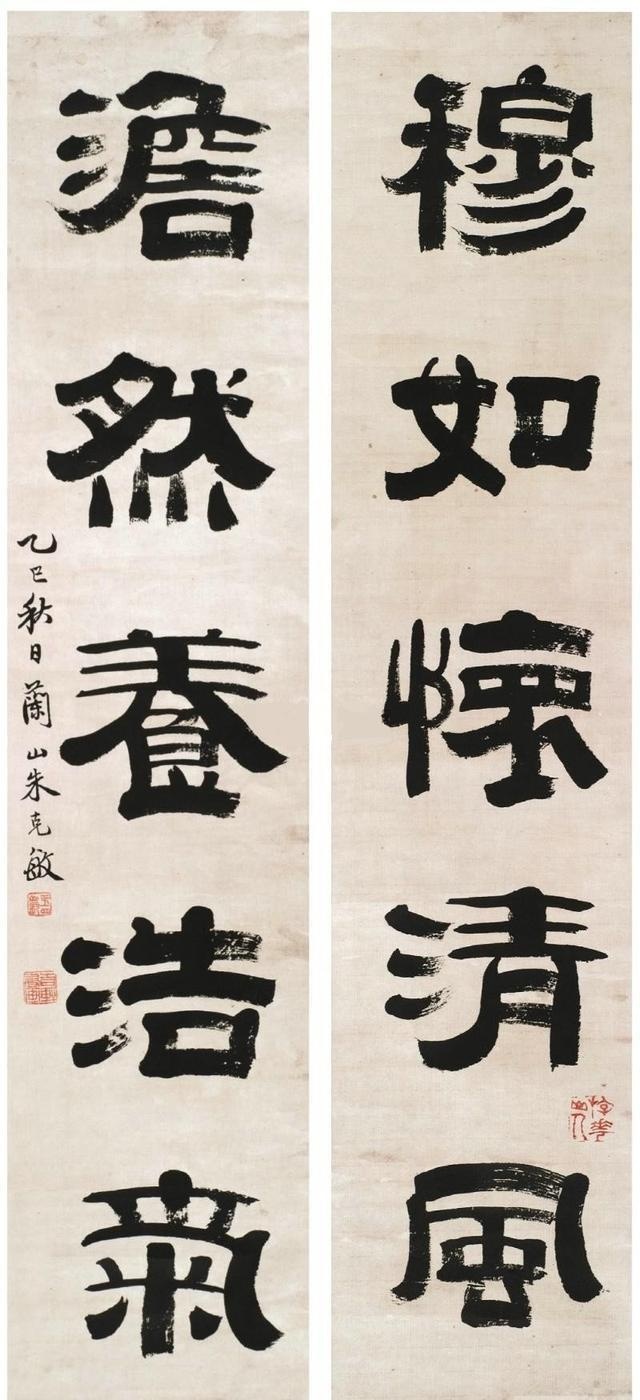 穆如懷清風
澹然養浩氣
乙巳秋日蘭山朱克敏